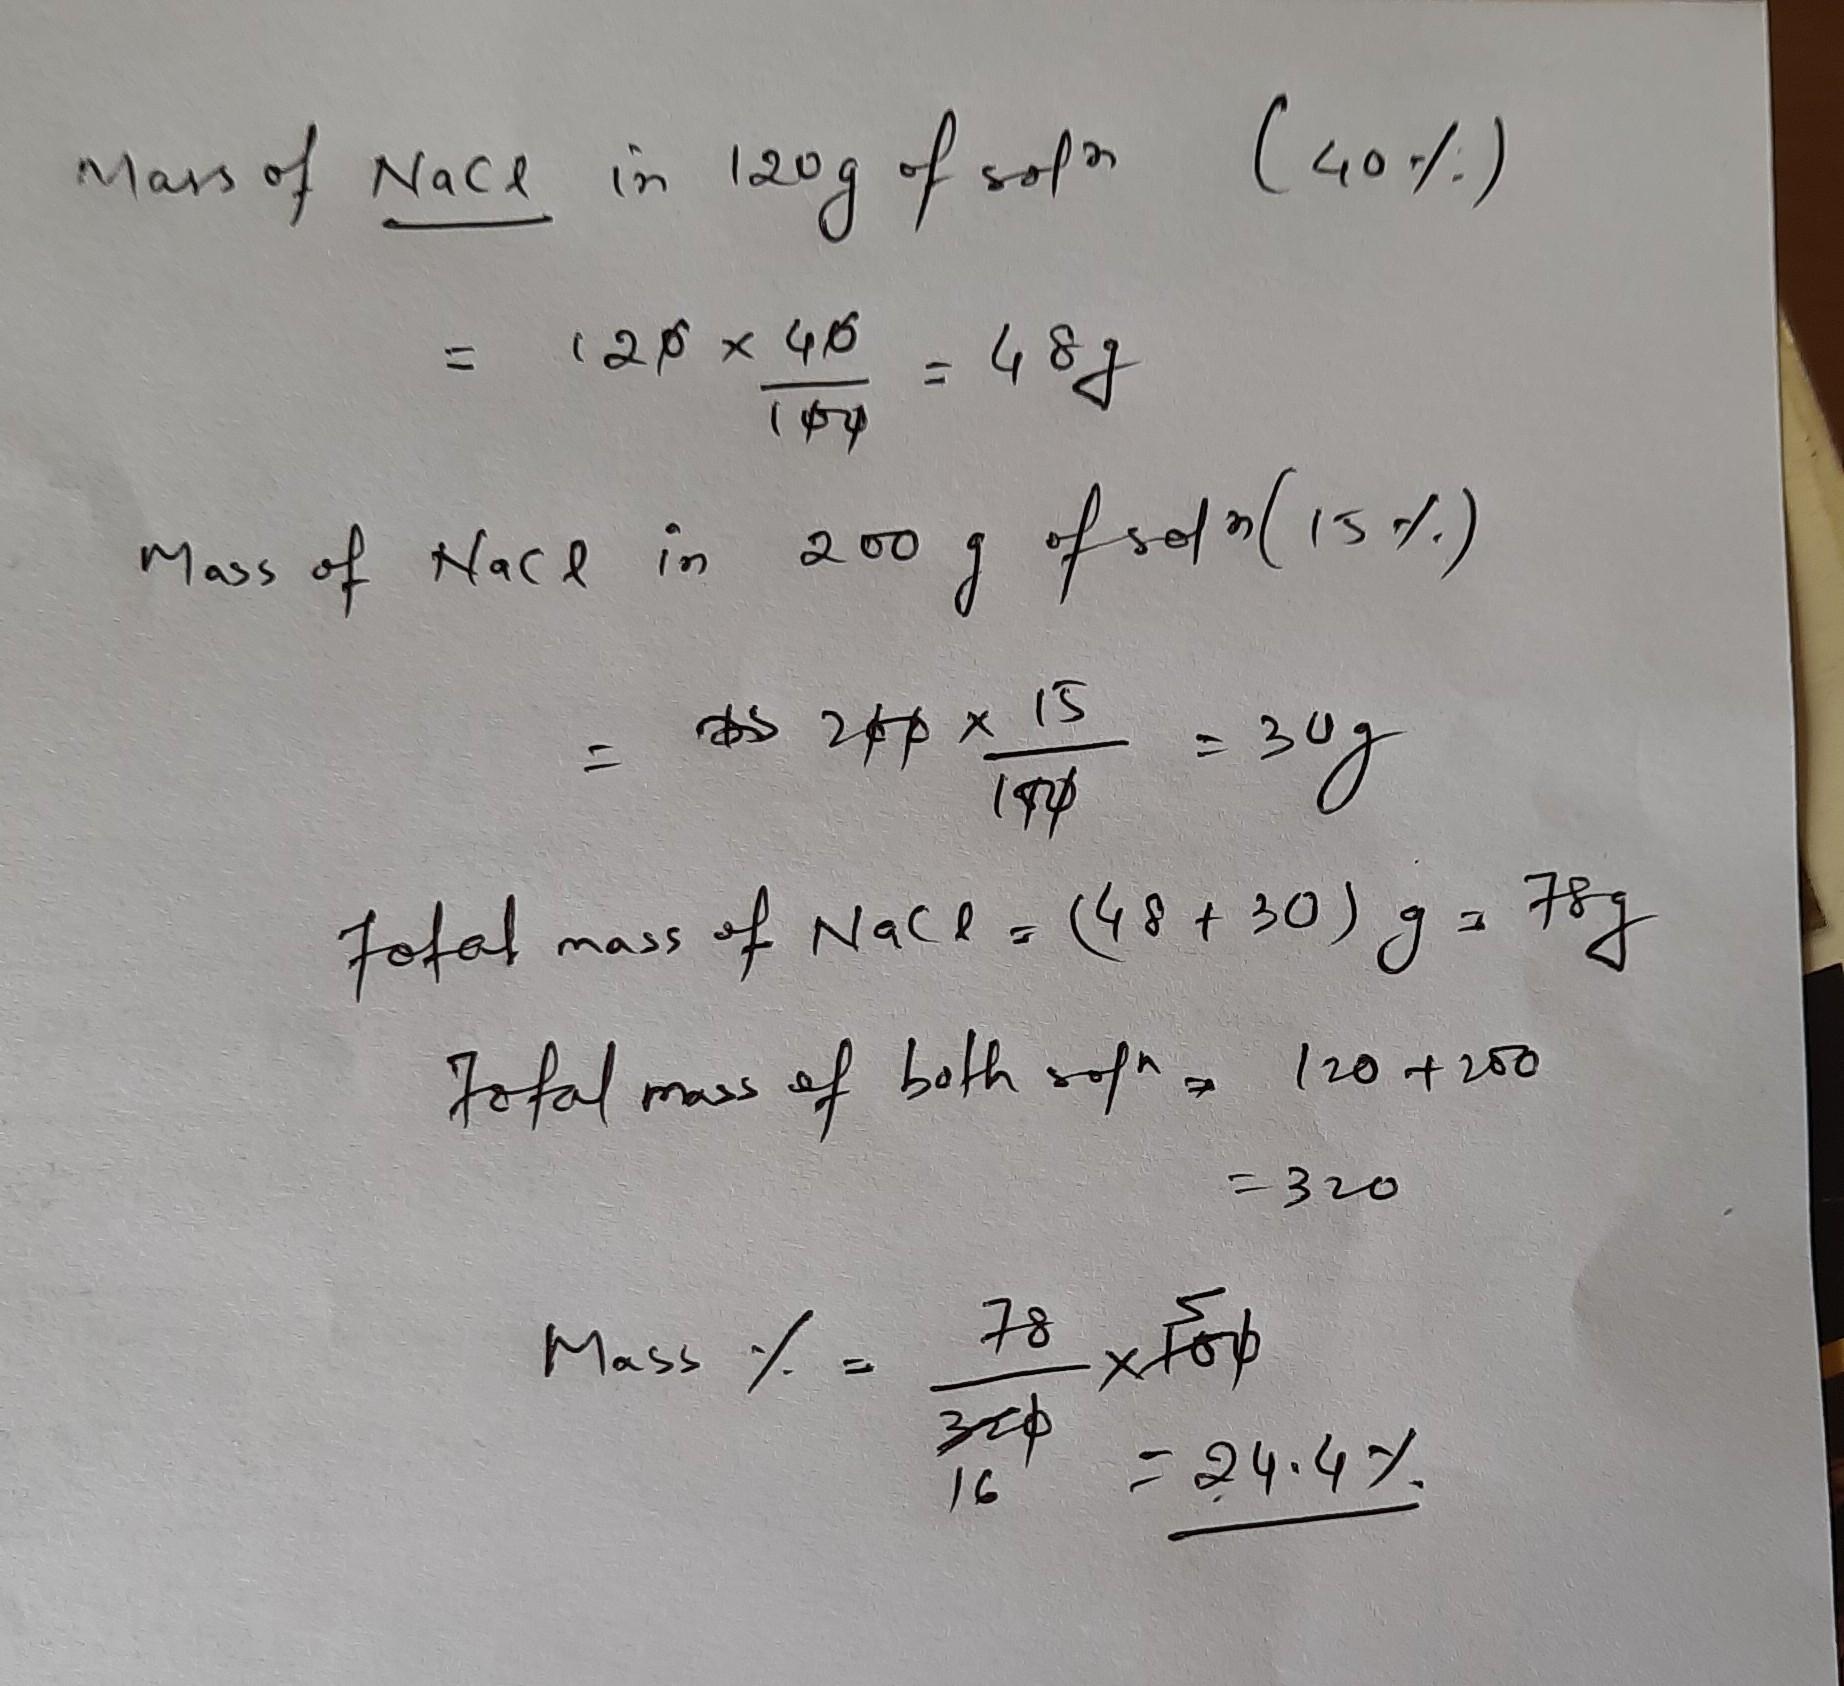 Mass of NaCl in 120g of soln (40%)
= 120 × 40/100 = 48g
Mass of NaCl in 200 g of soln (15%)
= 200 × 15/100 = 30g
Total mass of NaCl = (48 + 30) g = 78g
Total mass of both soln = 120 + 200
= 320
Mass % = 78/320 × 100
5
16
= 24.4%